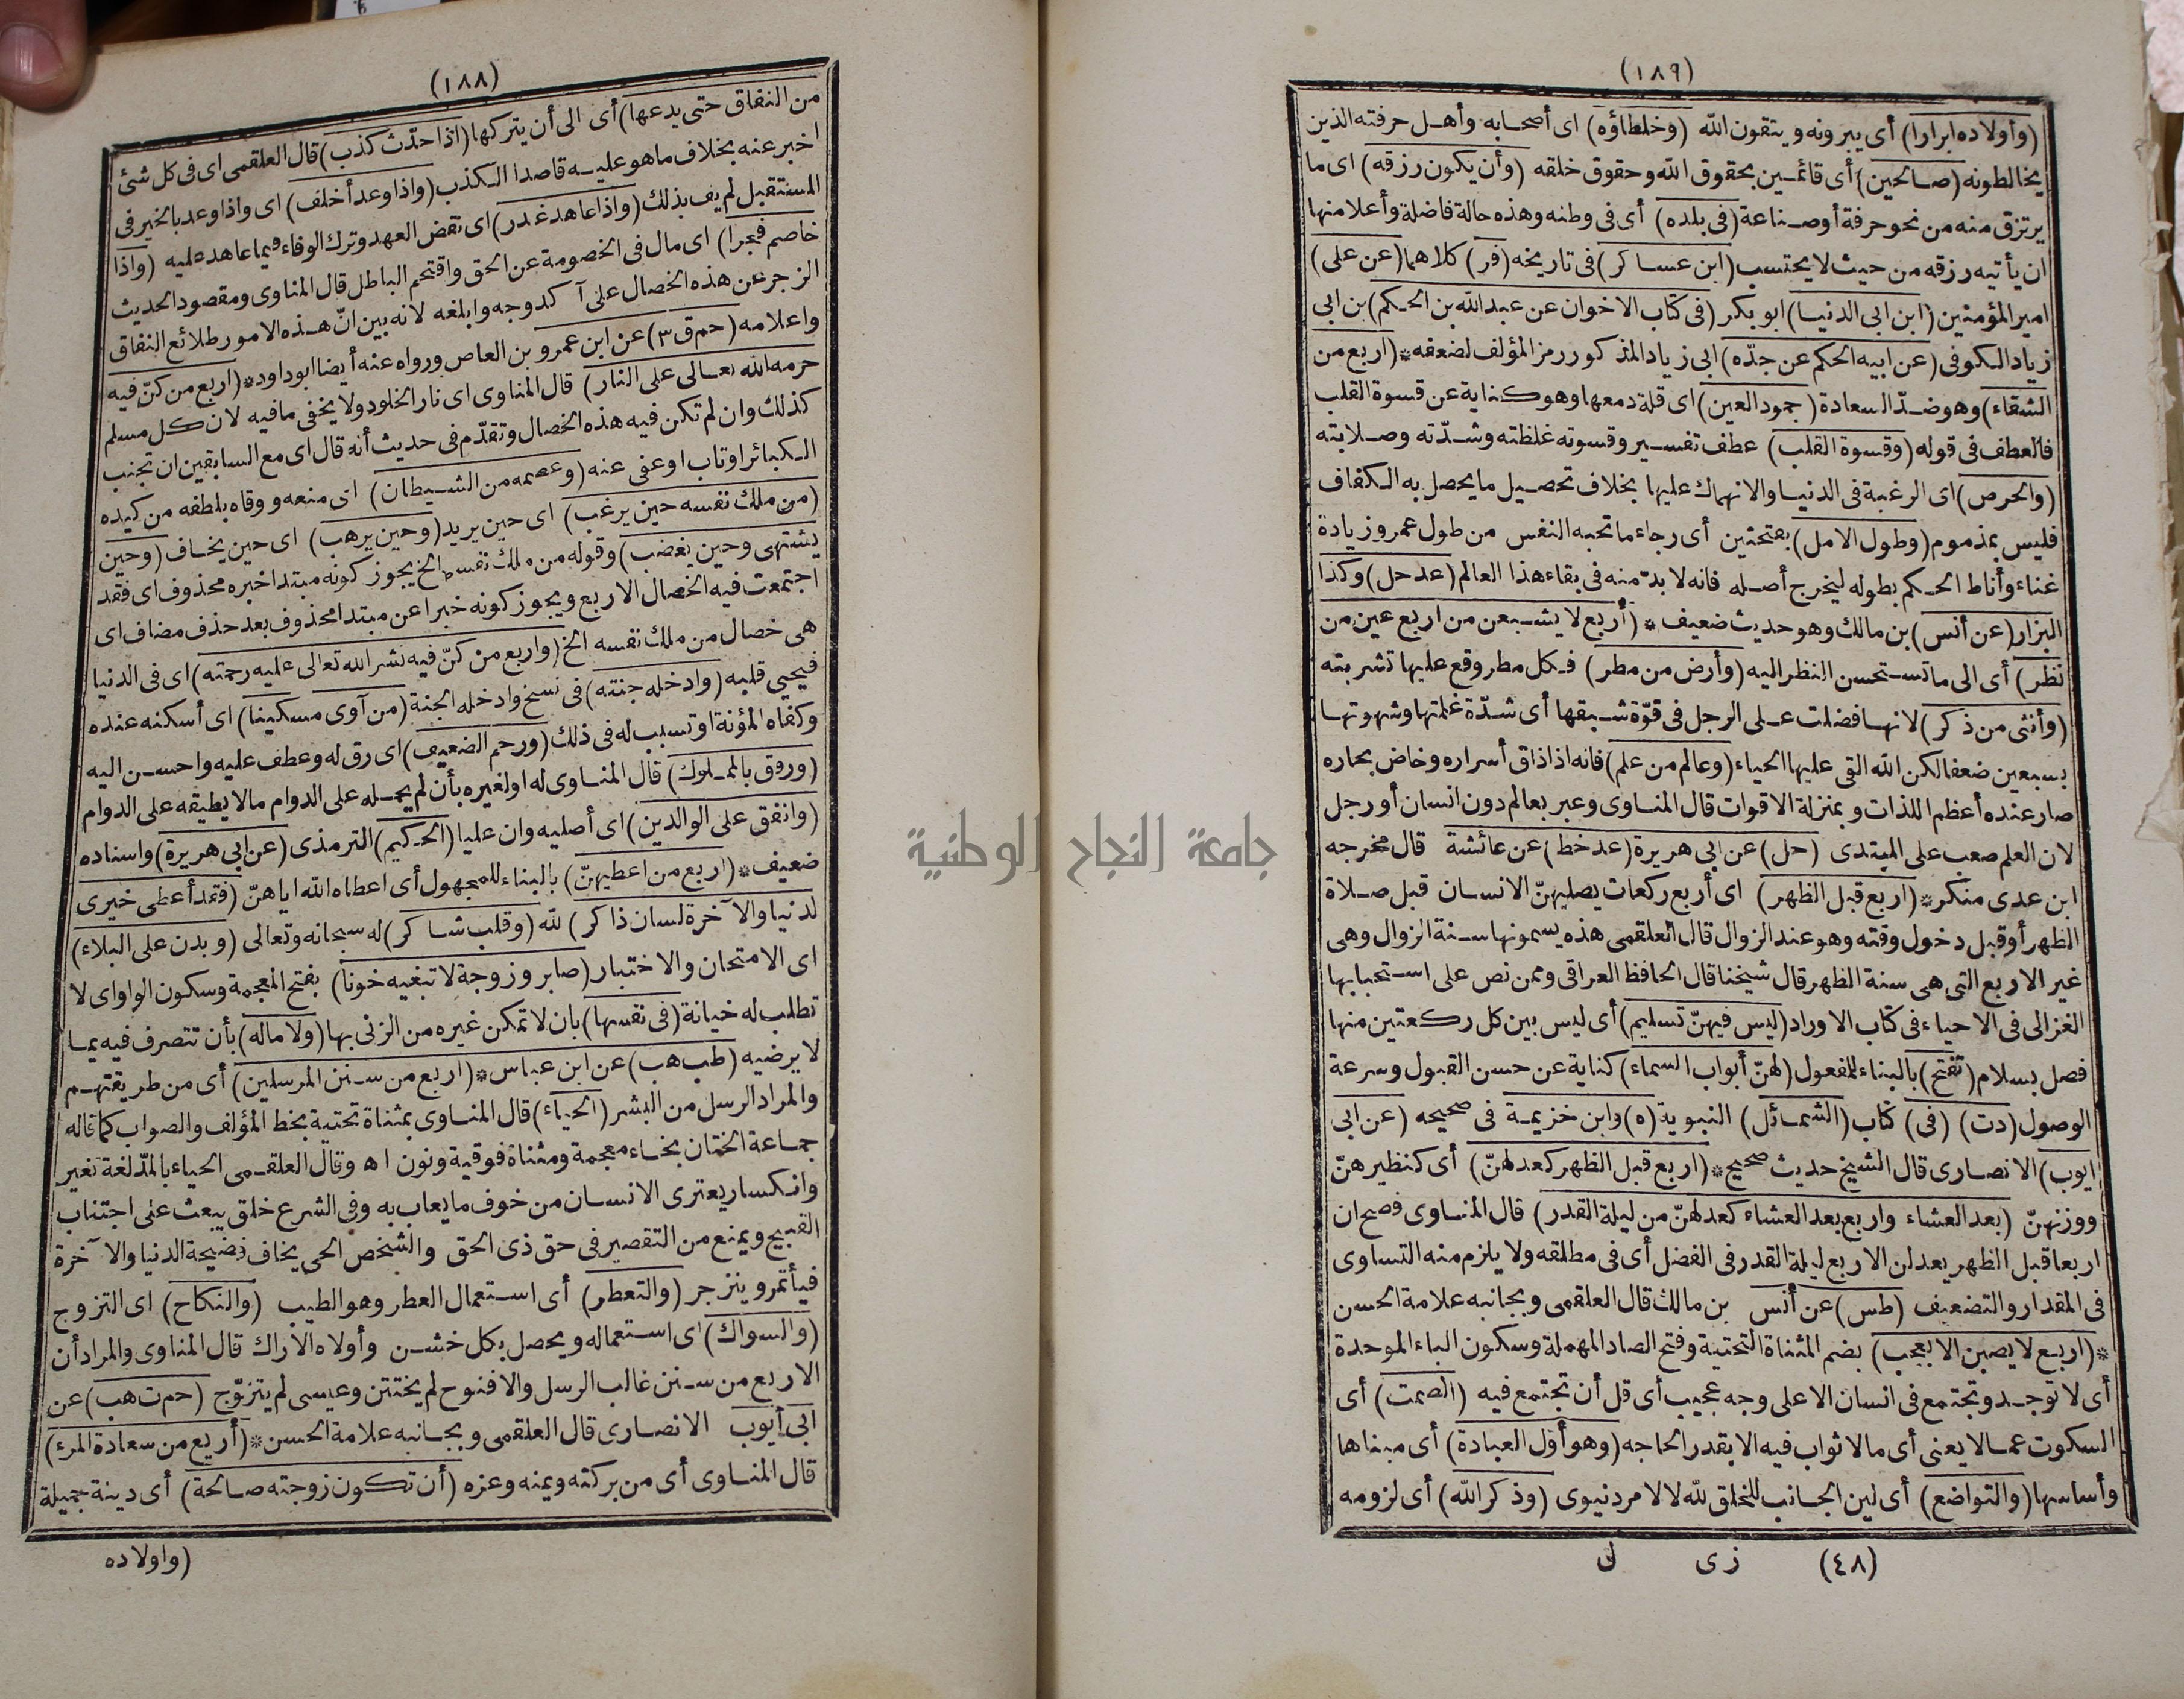 (١٨٨)
من النفاق حتى يدعها) أى الى أن يتركها (اذا حدّث كذب) قال العلقمى اى فى كل شئ
اخبر عنه بخلاف ما هو عليه قاصدا الكذب (واذا وعد أخلف) اى واذا وعد بالخير فى
المستقبل لم يف بذلك (واذا عاهد غدر) اى نقض العهد وترك الوفاء فيما عاهد عليه (واذا
خاصم فجرا) اى مال فى الخصومة عن الحق واقتحم الباطل قال المناوى ومقصود الحديث
الزجر عن هذه الخصال على آكد وجه وابلغه لانه بين انّ هذه الامور طلائع النفاق
واعلامه (حم ق ٣) عن ابن عمرو بن العاص ورواه عنه أيضا ابو داود * (اربع من كنّ فيه
حرمه الله تعالى على النار) قال المناوى اى نار الخلود ولا يخفى ما فيه لان كل مسلم
كذلك وان لم تكن فيه هذه الخصال وتقدّم فى حديث أنه قال اى مع السابقين ان تجنب
الكبائر او تاب او عفى عنه (وعصمه من الشيطان) اى منعه ووقاه بلطفه من كيده
(من ملك نفسه حين يرغب) اى حين يريد (وحين يرهب) اى حين يخاف (وحين
يشتهى وحين يغضب) وقوله من ملك نفسه الخ يجوز كونه مبتدا خبره محذوف اى فقد
اجتمعت فيه الخصال الاربع ويجوز كونه خبرا عن مبتدا محذوف بعد حذف مضاف اى
هى خصال من ملك نفسه الخ (واربع من كنّ فيه نشر الله تعالى عليه رحمته) اى فى الدنيا
فيحيى قلبه (وادخله جنته) فى نسخ وادخله الجنة (من آوى مسكينا) اى أسكنه عنده
وكفاه المؤنة او تسبب له فى ذلك (ورحم الضعيف) اى رق له وعطف عليه واحسن اليه
(ورفق بالمملوك) قال المناوى له او لغيره بأن لم يحمله على الدوام ما لا يطيقه على الدوام
(وانفق على الوالدين) اى أصليه وان عليا (الحكيم) الترمذى (عن ابى هريرة) واسناده
ضعيف * (اربع من اعطيهنّ) بالبناء للمجهول أى اعطاه الله اياهنّ (فقد أعطى خيرى
لدنيا والآخرة لسان ذاكر) لله (وقلب شاكر) له سبحانه وتعالى (وبدن على البلاء)
اى الامتحان والاختبار (صابر وزوجة لا تبغيه خونا) بفتح المعجمة وسكون الواو اى لا
تطلب له خيانة (فى نفسها) بان لا تمكن غيره من الزنى بها (ولا ماله) بأن تتصرف فيه بما
لا يرضيه (طب هب) عن ابن عباس * (اربع من سنن المرسلين) أى من طريقتهم
والمراد الرسل من البشر (الحياء) قال المناوى بمثناة تحتية بخط المؤلف والصواب كما قاله
جماعة الختان بخاء معجمة ومثناة فوقية ونون اه وقال العلقمى الحياء بالمدّ لغة تغير
وانكسار يعترى الانسان من خوف ما يعاب به وفى الشرع خلق يبعث على اجتناب
القبيح ويمنع من التقصير فى حق ذى الحق والشخص الحى يخاف فضيحة الدنيا والآخرة
فيأتمر وينزجر (والتعطر) أى استعمال العطر وهو الطيب (والنكاح) اى التزوج
(والسواك) اى استعماله ويحصل بكل خشن وأولاه الاراك قال المناوى والمراد أن
الاربع من سنن غالب الرسل والا فنوح لم يختتن وعيسى لم يتزوّج (حم ت هب) عن
ابى أيوب الانصارى قال العلقمى وبجانبه علامة الحسن * (أربع من سعادة المرء)
قال المناوى أى من بركته ويمنه وعزه (أن تكون زوجته صالحة) أى دينة جميلة
(واولاده
(١٨٩)
(وأولاده ابرارا) أى يبرونه ويتقون الله (وخلطاؤه) اى أصحابه وأهل حرفته الذين
يخالطونه (صالحين) أى قائمين بحقوق الله وحقوق خلقه (وأن يكون رزقه) اى ما
يرتزق منه من نحو حرفة أو صناعة (فى بلده) أى فى وطنه وهذه حالة فاضلة وأعلا منها
ان يأتيه رزقه من حيث لا يحتسب (ابن عساكر) فى تاريخه (فر) كلاهما (عن على)
امير المؤمنين (ابن ابى الدنيا) ابو بكر (فى كتاب الاخوان عن عبد الله بن الحكم) بن ابى
زياد الكوفى (عن ابيه الحكم عن جدّه) ابى زياد المذكور رمز المؤلف لضعفه * (اربع من
الشقاء) وهو ضدّ السعادة (جمود العين) اى قلة دمعها وهو كناية عن قسوة القلب
فالعطف فى قوله (وقسوة القلب) عطف تفسير وقسوته غلظته وشدّته وصلابته
(والحرص) اى الرغبة فى الدنيا والانهماك عليها بخلاف تحصيل ما يحصل به الكفاف
فليس بمذموم (وطول الامل) بفتحتين أى رجاء ما تحبه النفس من طول عمر وزيادة
غناء وأناط الحكم بطوله ليخرج أصله فانه لا بدّ منه فى بقاء هذا العالم (عد حل) وكذا
البزار (عن أنس) بن مالك وهو حديث ضعيف * (أربع لا يشبعن من اربع عين من
نظر) أى الى ما تستحسن النظر اليه (وأرض من مطر) فكل مطر وقع عليها تشربته
(وأنثى من ذكر) لانها فضلت على الرجل فى قوّة شبقها أى شدّة غلمتها وشهوتها
بسبعين ضعفا لكن الله القى عليها الحياء (وعالم من علم) فانه اذا ذاق أسراره وخاض بحاره
صار عنده أعظم اللذات وبمنزلة الاقوات قال المناوى وعبر بعالم دون انسان أو رجل
لان العلم صعب على المبتدى (حل) عن ابى هريرة (عد خط) عن عائشة قال مخرجه
ابن عدى منكر * (اربع قبل الظهر) اى أربع ركعات يصليهنّ الانسان قبل صلاة
الظهر أو قبل دخول وقته وهو عند الزوال قال العلقمى هذه يسمونها سنة الزوال وهى
غير الاربع التى هى سنة الظهر قال شيخنا قال الحافظ العراقى وممن نص على استحبابها
الغزالى فى الاحياء فى كتاب الاوراد (ليس فيهنّ تسليم) أى ليس بين كل ركعتين منها
فصل بسلام (تفتح) بالبناء للمفعول (لهنّ أبواب السماء) كناية عن حسن القبول وسرعة
الوصول (دت) (فى) كتاب (الشمائل) النبوية (ه) وابن خزيمة فى صحيحه (عن ابى
ايوب) الانصارى قال الشيخ حديث صحيح * (اربع قبل الظهر كعدلهنّ) أى كنظيرهنّ
ووزنهنّ (بعد العشاء واربع بعد العشاء كعدلهنّ من ليلة القدر) قال المناوى فصح ان
اربعا قبل الظهر يعدلن الاربع ليلة القدر فى الفضل أى فى مطلقه ولا يلزم منه التساوى
فى المقدار والتضعيف (طس) عن أنس بن مالك قال العلقمى وبجانبه علامة الحسن
* (اربع لا يصبن الا بعجب) بضم المثناة التحتية وفتح الصاد المهملة وسكون الباء الموحدة
أى لا توجد وتجتمع فى انسان الا على وجه عجيب أى قل أن تجتمع فيه (الصمت) أى
السكوت عما لا يعنى أى ما لا ثواب فيه الا بقدر الحاجه (وهو أوّل العبادة) أى مبناها
وأساسها (والتواضع) أى لين الجانب للخلق لله لا لامر دنيوى (وذكر الله) أى لزومه
(٤٨) زى ل
جامعة النجاح الوطنية